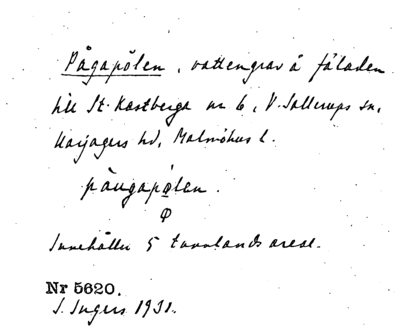 Pågapölen, vattengrav å fäladen
till St. Kastberga nr 6, V. Sallerups sn,
Harjagers hd, Malmöhus l.
pǎugapölen.
φ
Innehåller 5 tunnlands areal.
Nr 5620.
I. Ingers 1931.